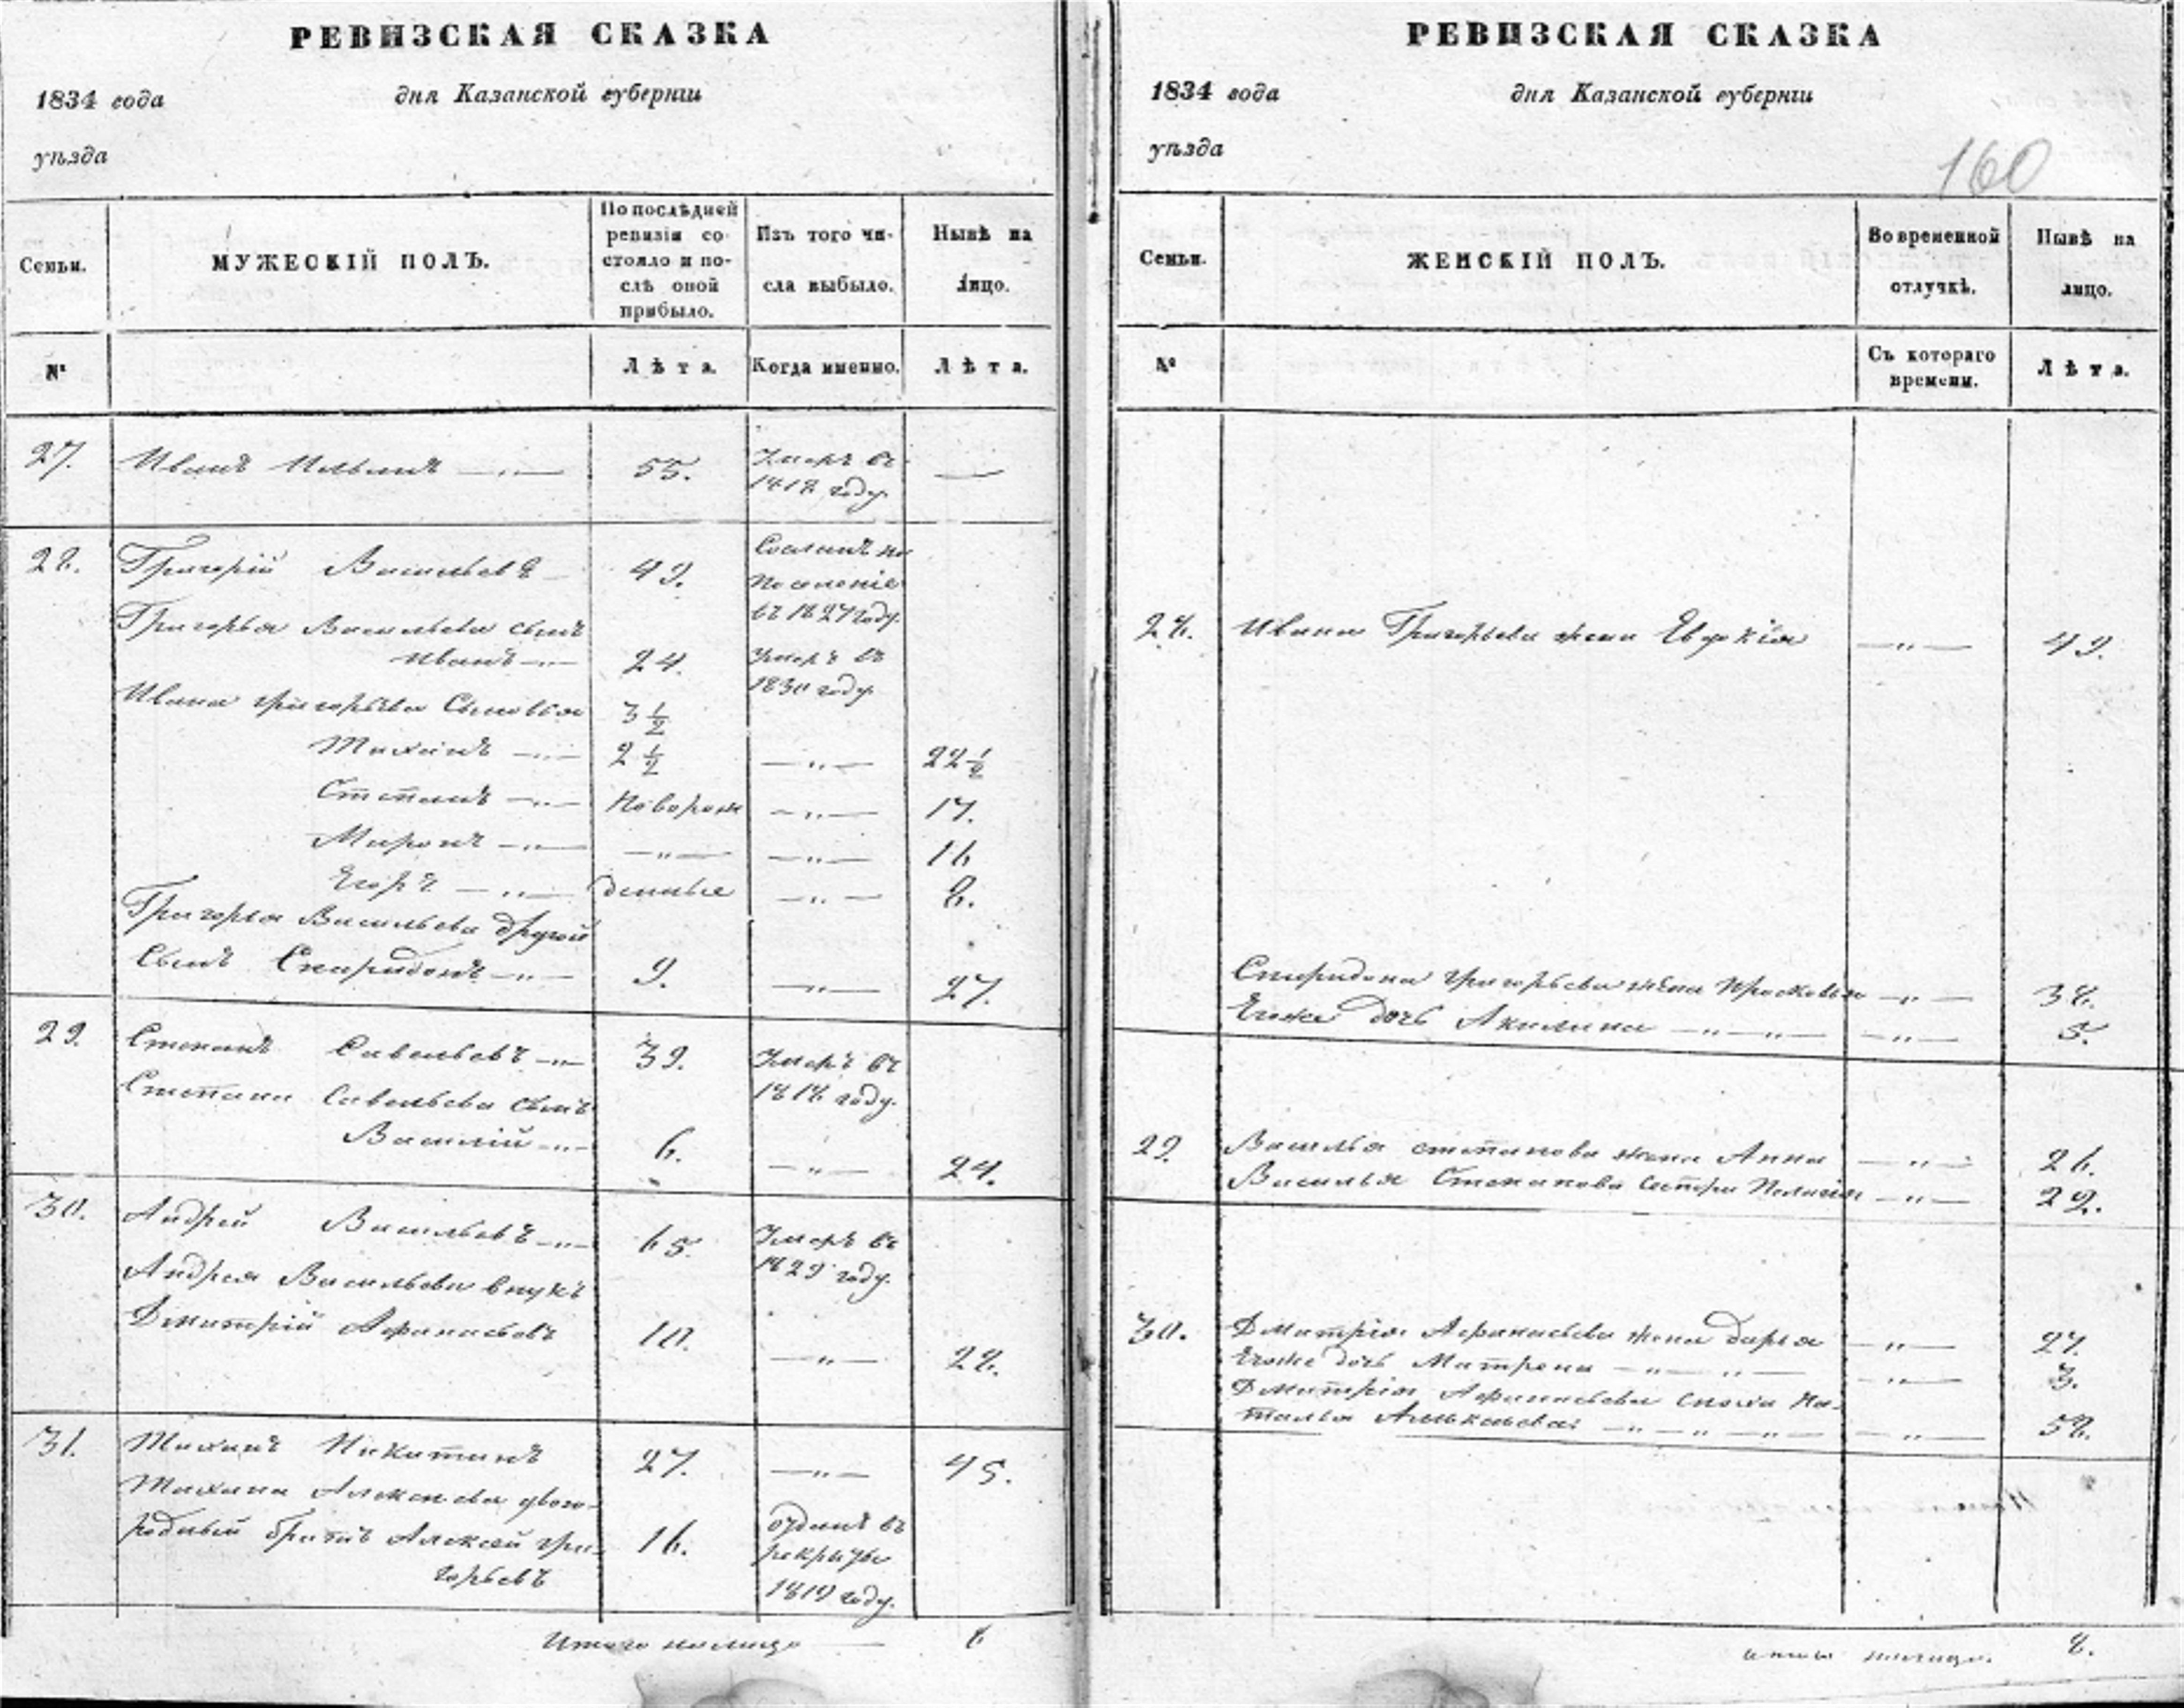 РЕВИЗСКАЯ СКАЗКА
1834 года дня Казанской губернiи
уѣзда
Семьи.
МУЖЕСКIЙ ПОЛЪ.
По послѣдней
ревизiи со-
стояло и по-
слѣ оной
прибыло.
Изъ того чи-
сла выбыло.
Нынѣ на
лицо.
№
Лѣта.
Когда именно.
Лѣта.
27. Иванъ 55. Умеръ въ
году. —
28. Григорiй Васильевъ 49. Сосланъ на
поселенiе
въ 1827 году.
Григорья Васильева сынъ
Иванъ 24. Умеръ въ
1830 году.
Ивана Григорьева сыновья 3 ½
Тихонъ 2 ½ — „ — 22 ½
Степанъ новорож — „ — 17.
Миронъ — „ — — „ — 16
Егоръ — „ — 8.
Григорья Васильева другой
сынъ Спиридонъ 9. — „ — 27.
29. Степанъ Савельевъ 39. Умеръ въ
1818 году.
Степана Савельева сынъ
Василiй 6. — „ — 24.
30. Андрей Васильевъ 65. Умеръ въ
1829 году.
Андрея Васильева внукъ
Дмитрiй Афанасьевъ 10. — „ — 28.
31. Тихонъ Никитинъ 27. — „ — 45.
Тихона двою-
родный братъ Алексей Гри-
горьевъ 16. отданъ въ
рекруты
1819 году.
Итого налицо — 8
РЕВИЗСКАЯ СКАЗКА
1834 года дня Казанской губернiи
уѣзда
160
Семьи.
ЖЕНСКIЙ ПОЛЪ.
Во временной
отлучкѣ.
Нынѣ на
лицо.
№
Съ котораго
времени.
Лѣта.
28. Ивана Григорьева жена Евдокiя — „ — 49.
Спиридона Григорьева жена Прасковья — „ — 38.
Егоже дочь Акилина — „ — „ — — „ — 5.
29. Василья Степанова жена Анна — „ — 26.
Василья Степанова сестра Пелагiя — „ — 29.
30. Дмитрiя Афанасьева жена Дарья — „ — 27.
Егоже дочь Матрена — „ — „ — — „ — 3.
Дмитрiя Афанасьева сноха На-
талья — „ — „ — „ — — „ — 58.
итого налицо. 8.